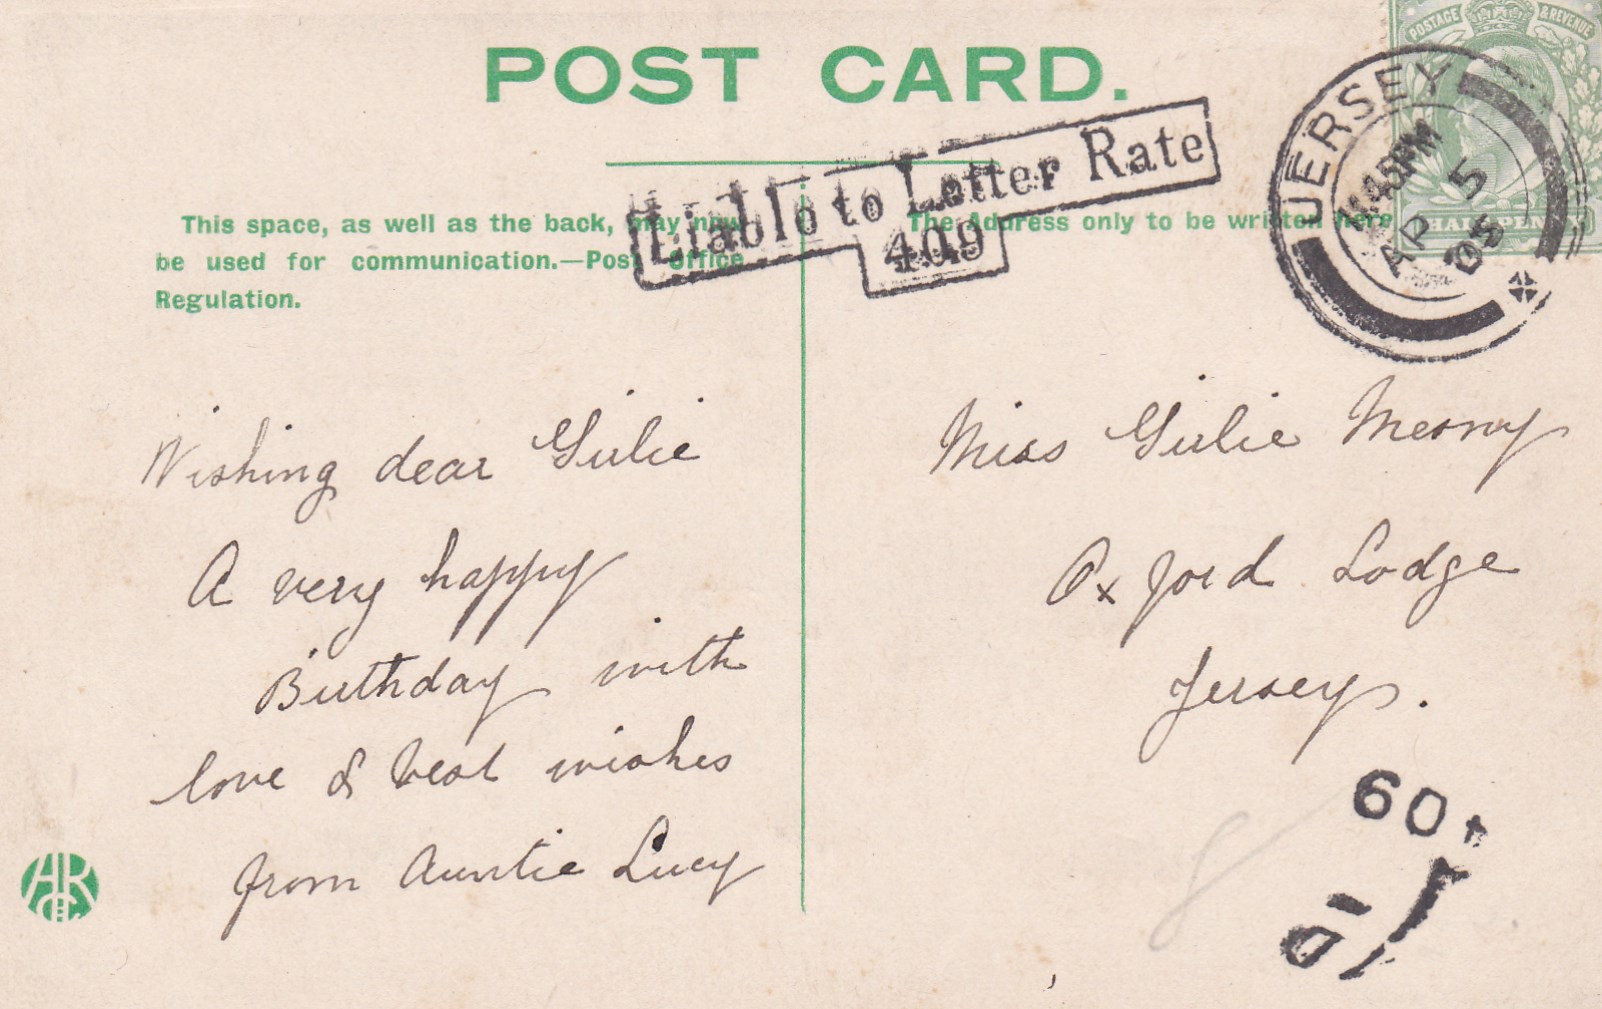 POST CARD.
POSTAGE & REVENUE
HALFPENNY
JERSEY
11.45PM
AP 5
05
Liable to Letter Rate
409
This space, as well as the back, may now
be used for communication.—Post Office
Regulation.
The Address only to be written here
Wishing dear Girlie
A very happy
Birthday with
love & best wishes
from Auntie Lucy
Miss Girlie
Oxford Lodge
Jersey.
409
1D
8